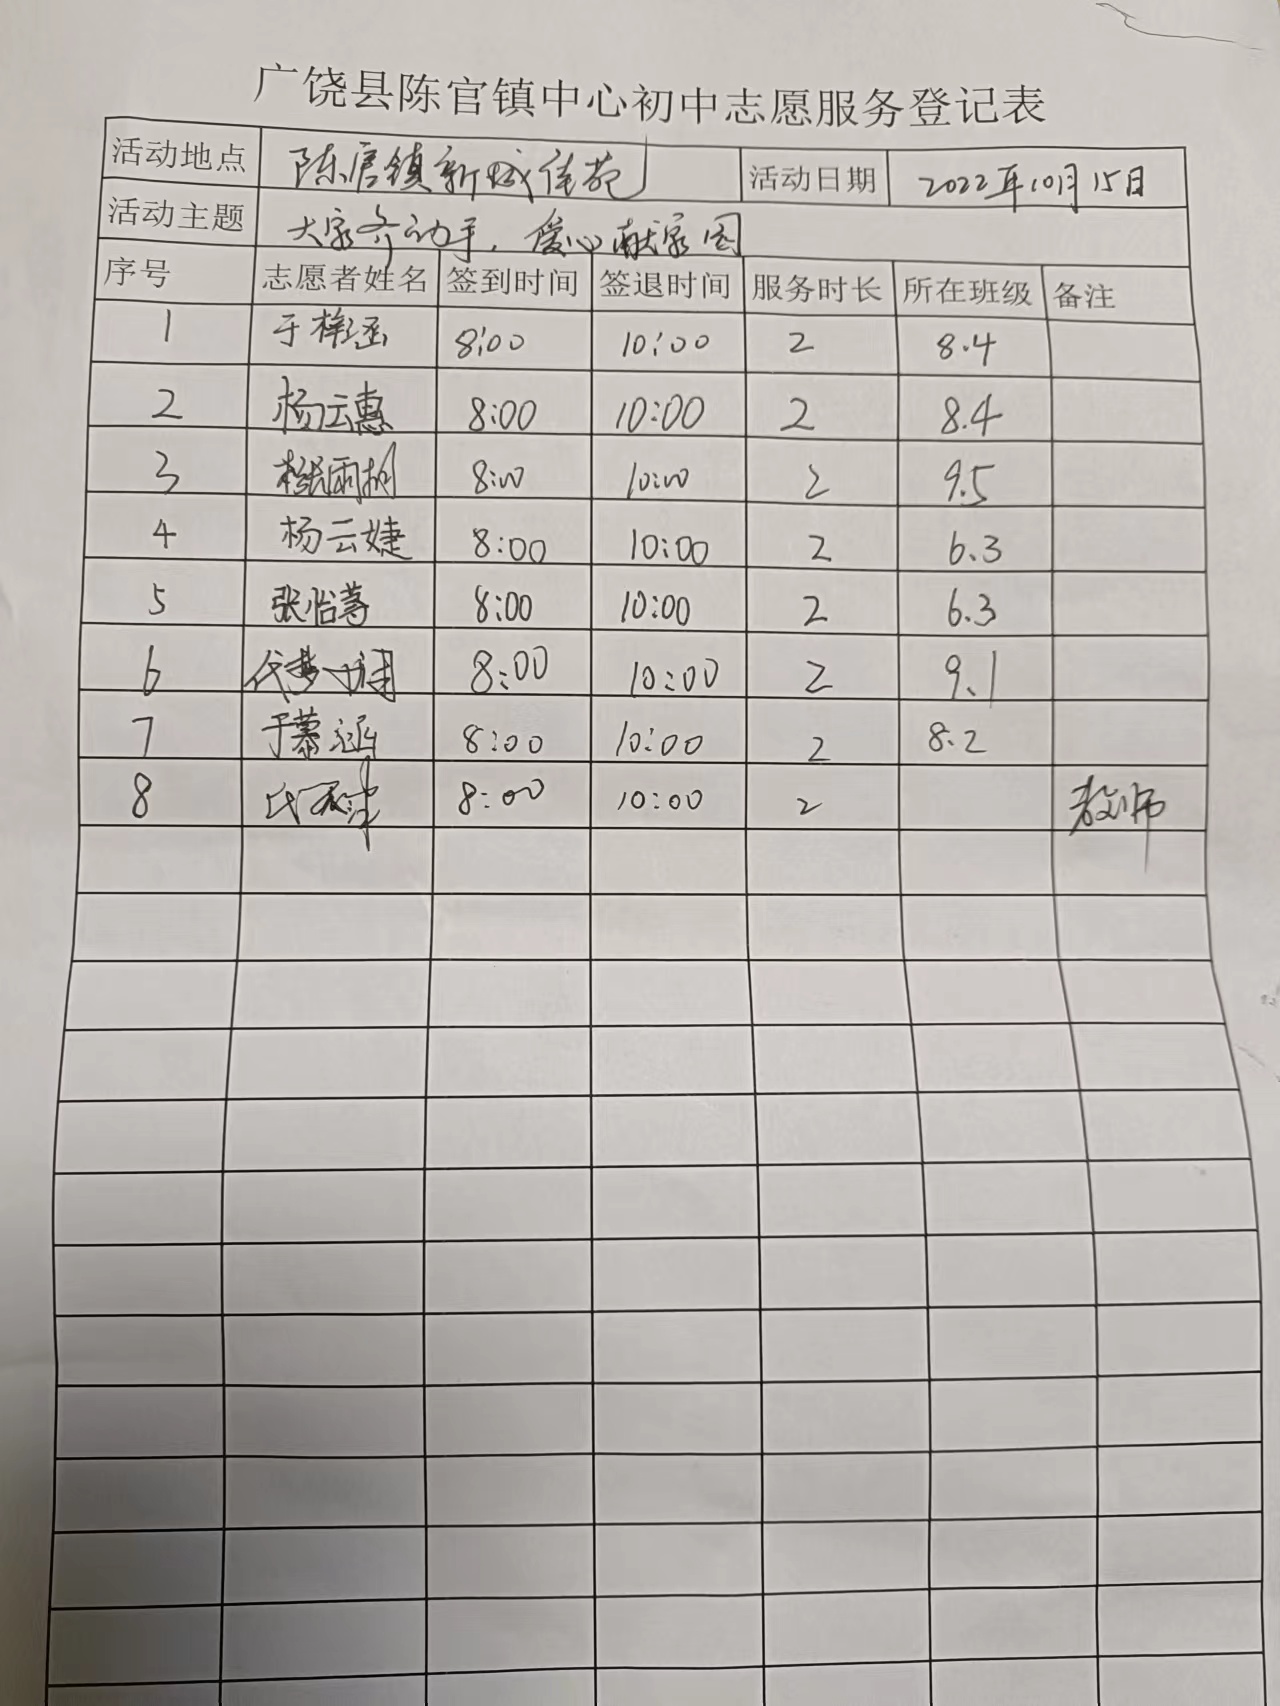 广饶县陈官镇中心初中志愿服务登记表
活动地点 陈官镇新城佳苑 活动日期 2022年10月15日
活动主题 大家齐动手，爱心献家园
序号 志愿者姓名 签到时间 签退时间 服务时长 所在班级 备注
1 于梓涵 8:00 10:00 2 8.4
2 杨云惠 8:00 10:00 2 8.4
3 8:00 10:00 2 9.5
4 杨云婕 8:00 10:00 2 6.3
5 张怡 8:00 10:00 2 6.3
6 代梦 8:00 10:00 2 9.1
7 于慕涵 8:00 10:00 2 8.2
8 8:00 10:00 2 教师